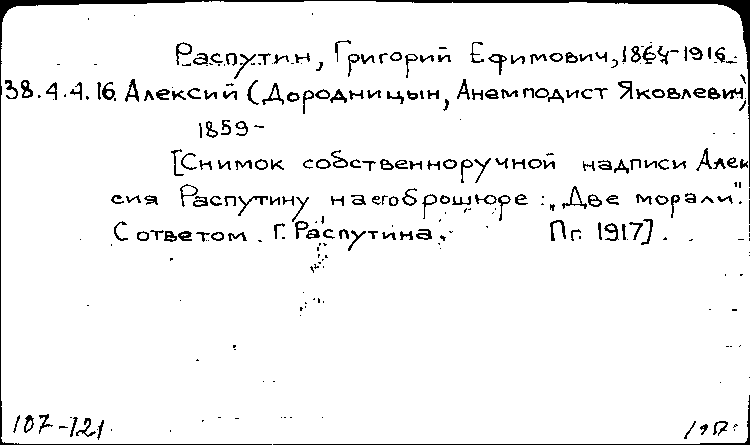 Распутин, Григорий Ефимович, 1864-1916.
38.4.4.16. Алексий (Дородницын, Анемподист Яковлевич)
1859-
[Снимок собственноручной надписи Алек
сия Распутину на его брошюре: „Две морали".
С ответом Г. Распутина. Пг. 1917].
107-121